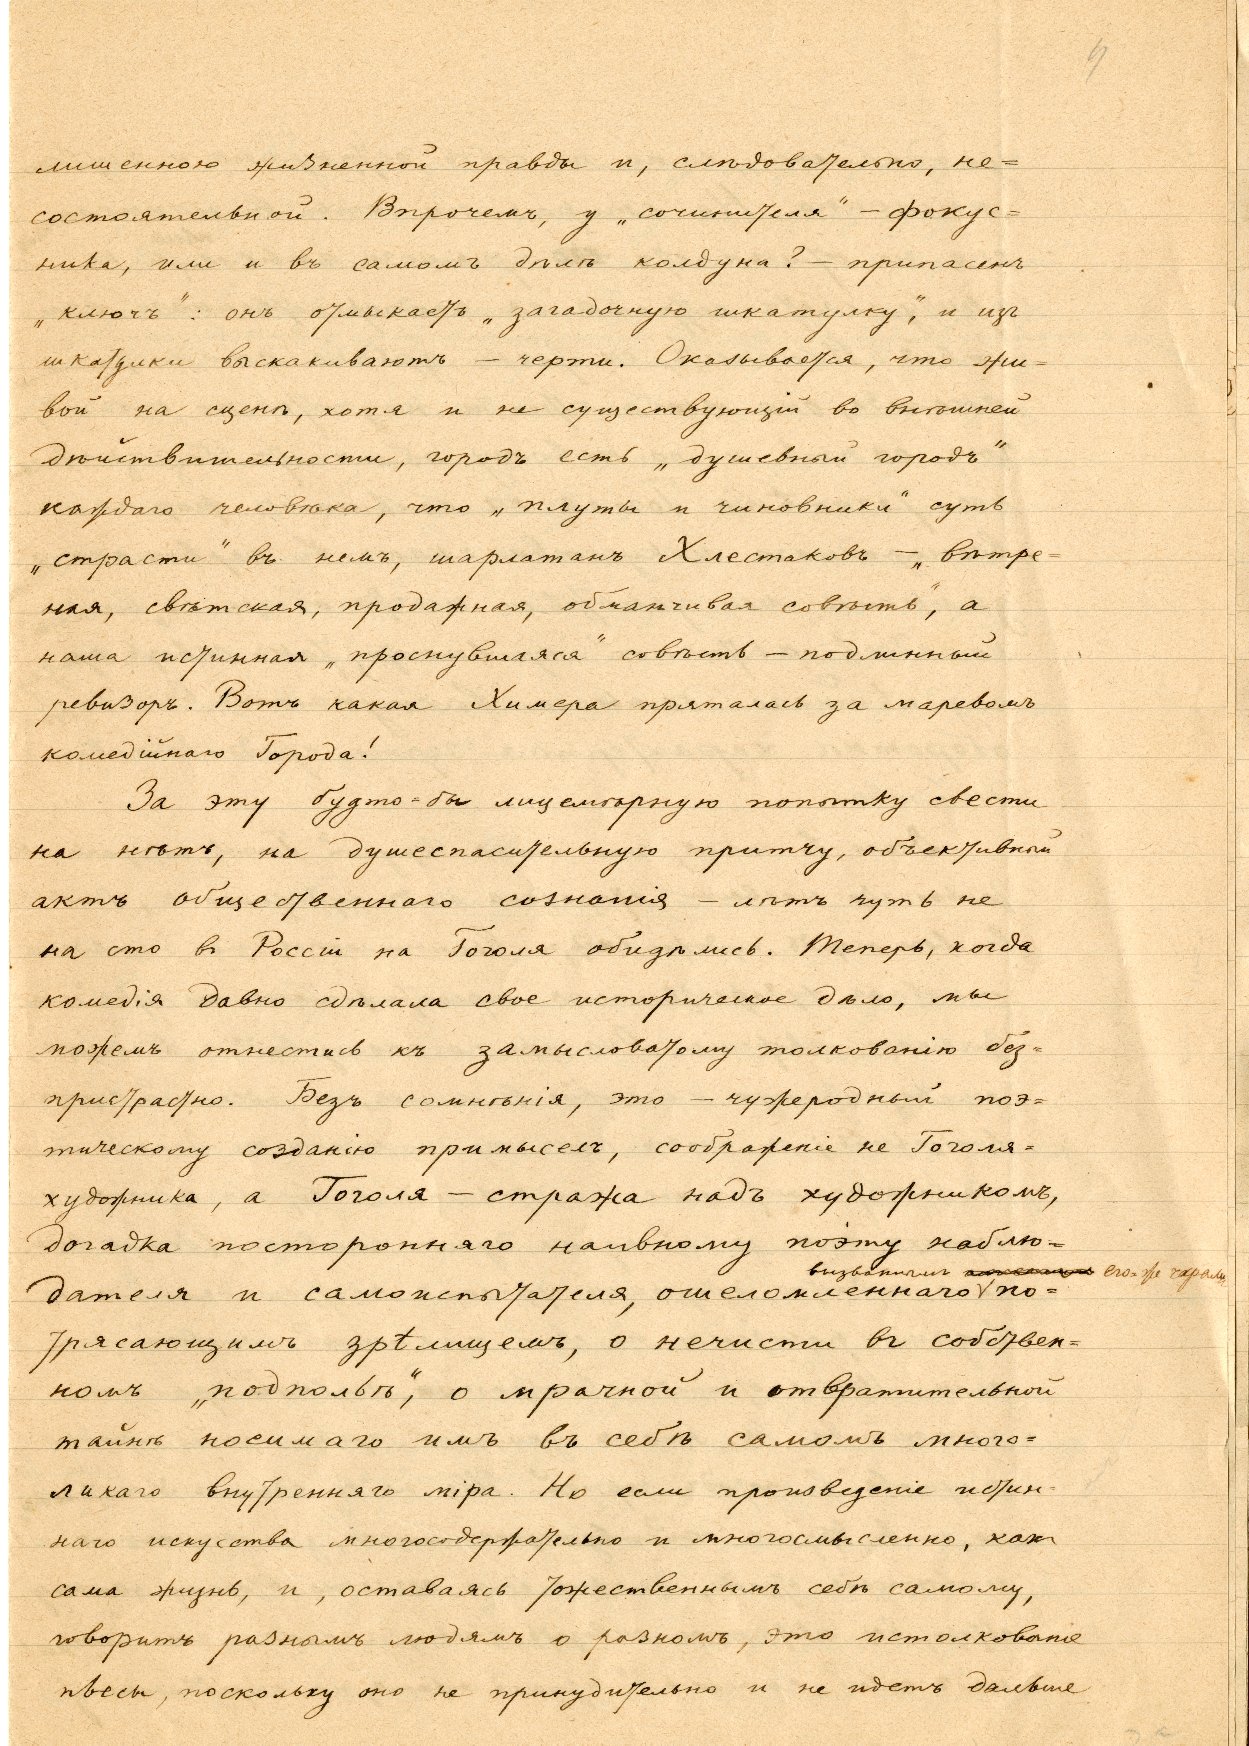 9
лишенною жизненной правды и, слѣдовательно, не=
состоятельной. Впрочемъ, у „сочинителя“ – фокус=
ника, или и въ самомъ дѣлѣ колдуна? – припасенъ
„ключъ“: онъ отмыкаетъ „загадочную шкатулку“, и изъ
шкатулки выскакиваютъ – черти. Оказывается, что жи=
вой на сценѣ, хотя и не существующій во внѣшней
дѣйствительности, городъ есть „душевный городъ“
каждаго человѣка, что „плуты и чиновники“ суть
„страсти“ въ немъ, шарлатанъ Хлестаковъ – „вѣтре=
ная, свѣтская, продажная, обманчивая совѣсть“, а
наша истинная „проснувшаяся“ совѣсть – подлинный
ревизоръ. Вотъ какая Химера пряталась за маревомъ
комедійнаго Города!
За эту будто=бы лицемѣрную попытку свести
на нѣтъ, на душеспасительную притчу, объективный
актъ общественнаго сознанія – лѣтъ чуть не
на сто въ Россіи на Гоголя обидѣлись. Теперь, когда
комедія давно сдѣлала свое историческое дѣло, мы
можемъ отнестись къ замысловатому толкованію без=
пристрастно. Безъ сомнѣнія, это – чужеродный поэ=
тическому созданію примыселъ, соображеніе не Гоголя=
художника, а Гоголя – стража надъ художникомъ,
догадка посторонняго наивному поэту наблю=
вызваннымъ его=же чарами
дателя и самоиспытателя, ошеломленнаго по=
трясающимъ зрѣлищемъ, о нечисти въ собствен=
номъ „подпольѣ“, о мрачной и отвратительной
тайнѣ носимаго имъ въ себѣ самомъ много=
ликаго внутренняго міра. Но если произведеніе истин=
наго искусства многосодержательно и многосмысленно, какъ
сама жизнь, и, оставаясь тожественнымъ себѣ самому,
говоритъ разнымъ людямъ о разномъ, это истолкованіе
пьесы, поскольку оно не принудительно и не идетъ дальше